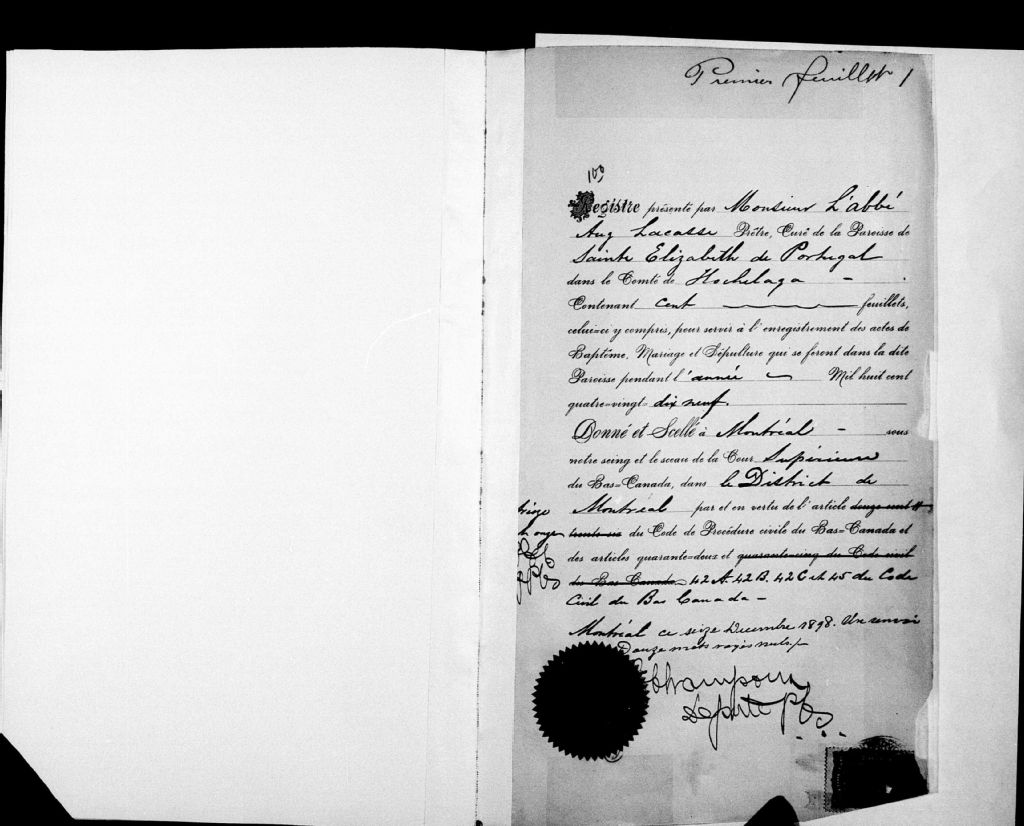 Premier feuillet 1
100
Registre présenté par Monsieur L'abbé
Aug Lacasse Prêtre, Curé de la Paroisse de
Sainte Elizabeth de Portugal
dans le Comté de Hochelaga -
Contenant cent feuillets,
celui-ci y compris, pour servir à l'enregistrement des actes de
Baptême, Mariage et Sépulture qui se feront dans la dite
Paroisse pendant l'année Mil huit cent
quatre-vingt- dix neuf
Donné et Scellé à Montréal - sous
notre seing et le sceau de la Cour Supérieure
du Bas-Canada, dans le District de
Montréal par et en vertu de l'article
du Code de Procédure civile du Bas-Canada et
onze
des articles quarante-deux et quarante-cinq du Code civil
du Bas Canada 42 A 42 B. 42 C et 45 du Code
Civil du Bas Canada -
Montréal ce seize Decembre 1898. Un renvoi
Douze mots rayés nuls
Champoux
Députe P.C.S.